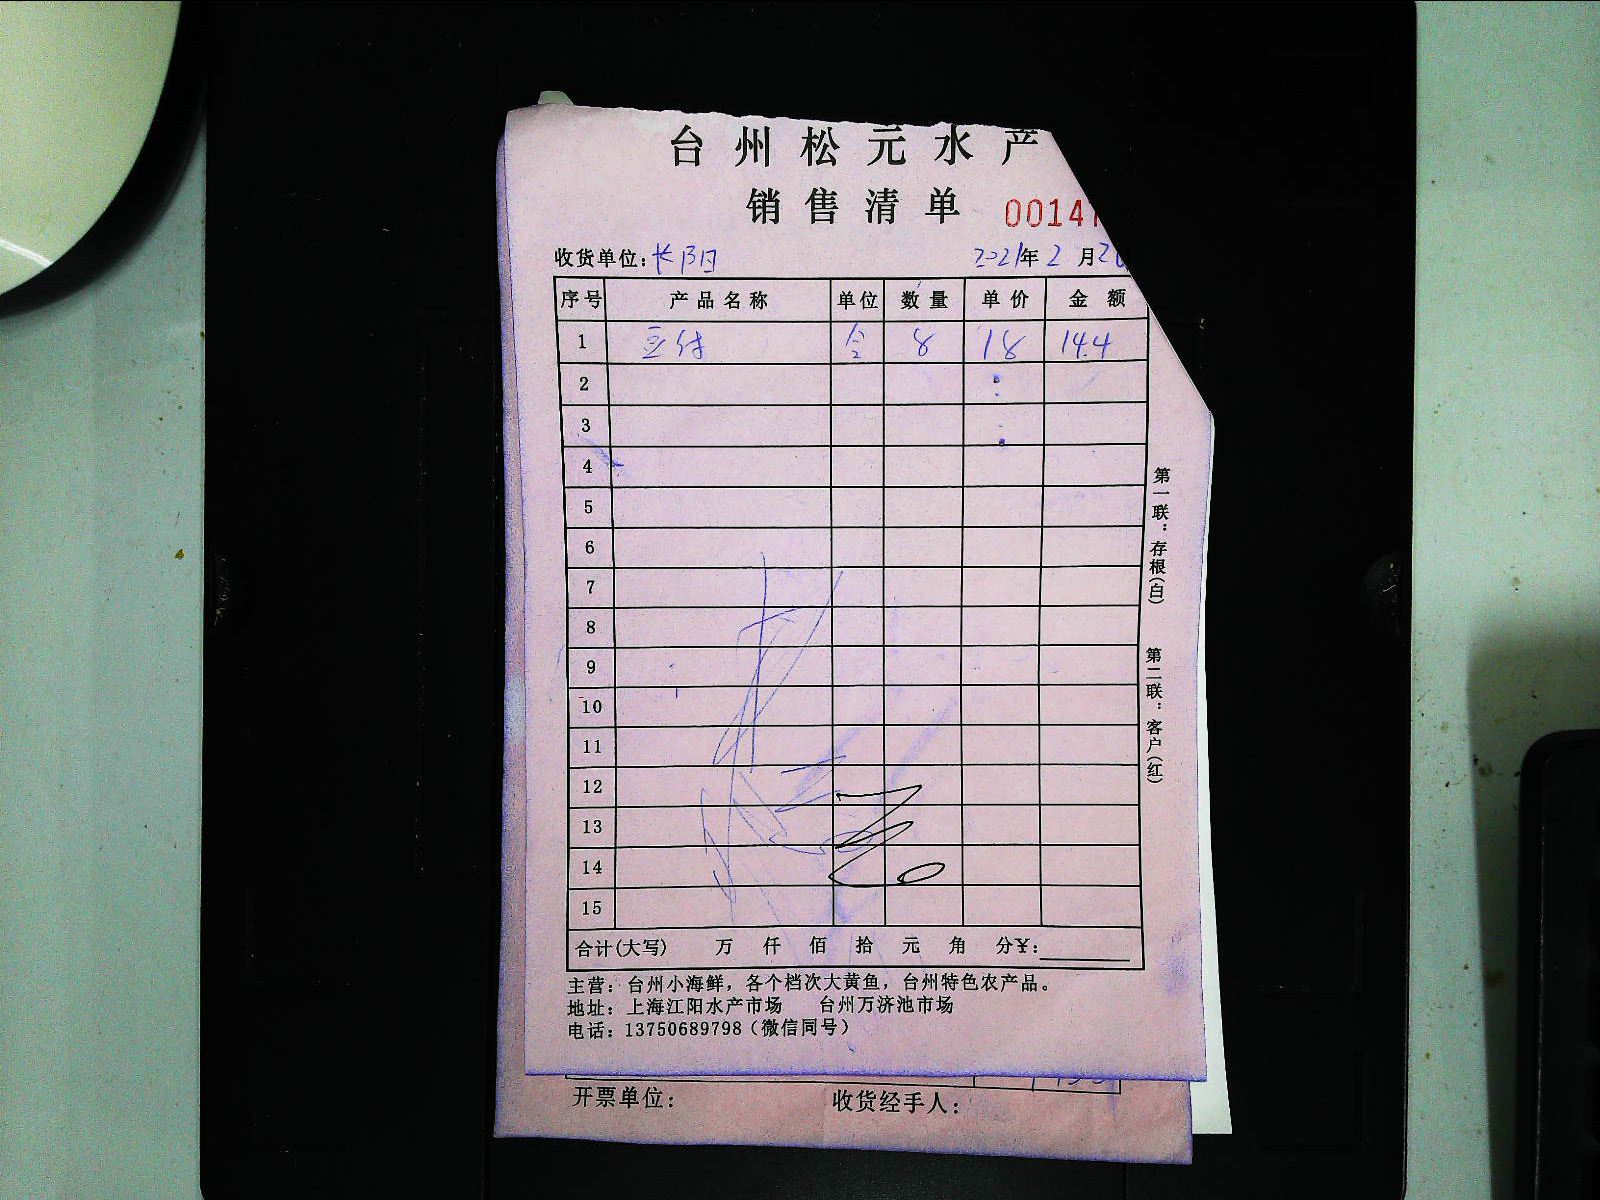 台州松元水产
销售清单 00147
收货单位: 2021年 2 月2
序号 产品名称 单位 数量 单价 金额
1 8 18 14.4
2
3
4
5
6
7
8
9
10
11
12
13
14
15
合计(大写) 万 仟 佰 拾 元 角 分¥:
主营：台州小海鲜，各个档次大黄鱼，台州特色农产品。
地址：上海江阳水产市场 台州万济池市场
电话：13750689798（微信同号）
开票单位： 收货经手人：
第一联：存根(白)
第二联：客户(红)